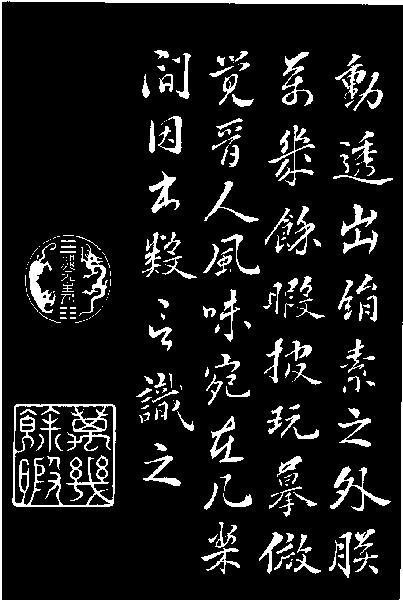 動透出絹素之外朕
萬幾餘暇披玩摹倣
覺晉人風味宛在几案
間因書數言識之
萬幾餘暇